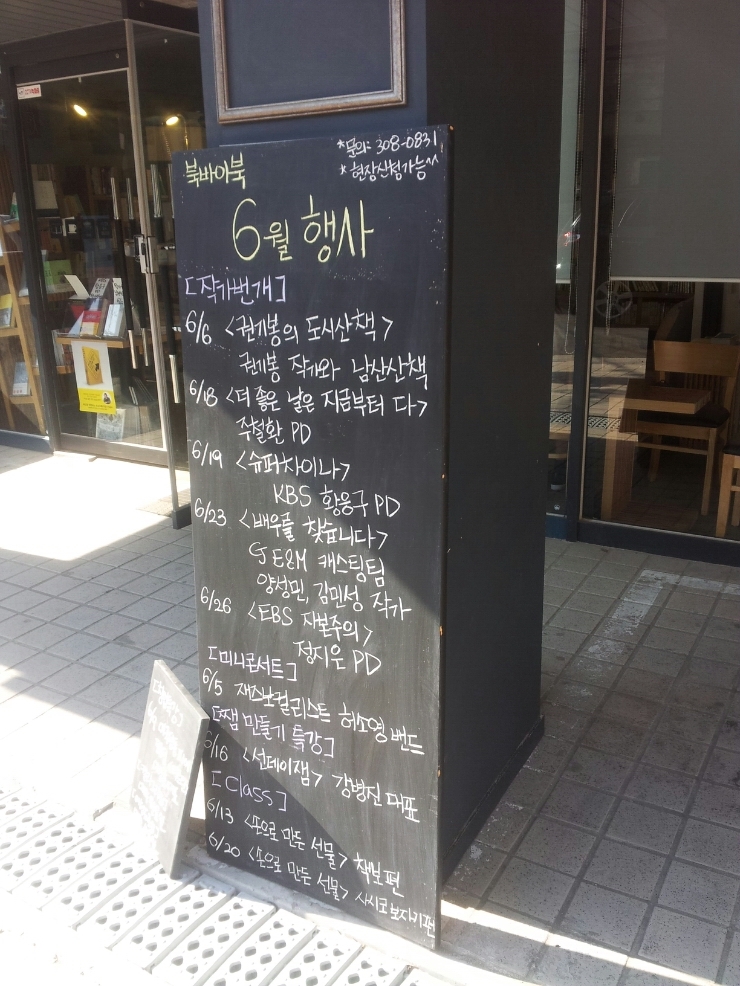 북바이북
*문의: 308-0831
*현장신청가능^^
6월 행사
[작가번개]
6/6 <권기봉의 도시산책>
권기봉 작가와 남산산책
6/18 <더 좋은 날은 지금부터 다>
주철환 PD
6/19 <슈퍼차이나>
KBS 황응구 PD
6/23 <배우를 찾습니다>
CJ E&M 캐스팅팀
양성민, 김민성 작가
6/26 <EBS 자본주의>
정지은 PD
[미니콘서트]
6/5 재즈보컬리스트 허소영 밴드
[잼 만들기 특강]
6/16 <선데이잼> 강병진 대표
[Class]
6/13 <손으로 만든 선물> 책보편
6/20 <손으로 만든 선물> 사시코보자기편